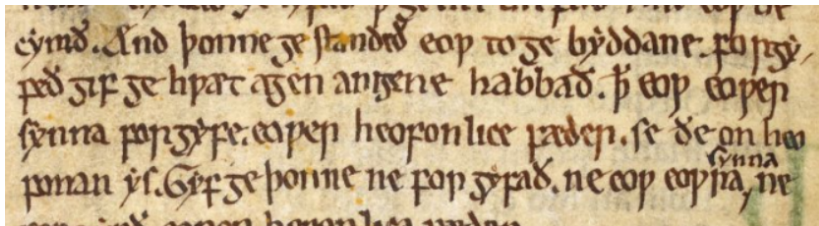 cymð. And þonne ge standeð eoƿ to ge byddane. forgy
feð gif ge hƿæt agen anigene habbað. ꝥ eoƿ eoƿer
synna forgyfe. eoƿer heofonlice fæder. se ðe on heo
synna
fonan ys. Gyf ge þonne ne for gyfað. ne eoƿ eoƿra, ne